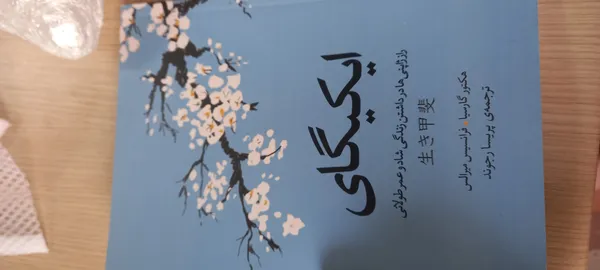 ایکیگای
راز ژاپنی‌ها در داشتن زندگی شاد و عمر طولانی
生き甲斐
هکتور گارسیا، فرانسیس میرالس
ترجمه‌ی پریسا رجوند